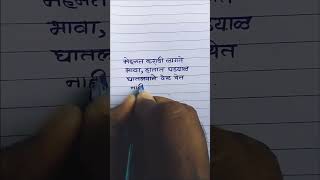 मेहनत करावी लागते
भावा, हातात घड्याळ
घातल्याने वेळ येत
नाही